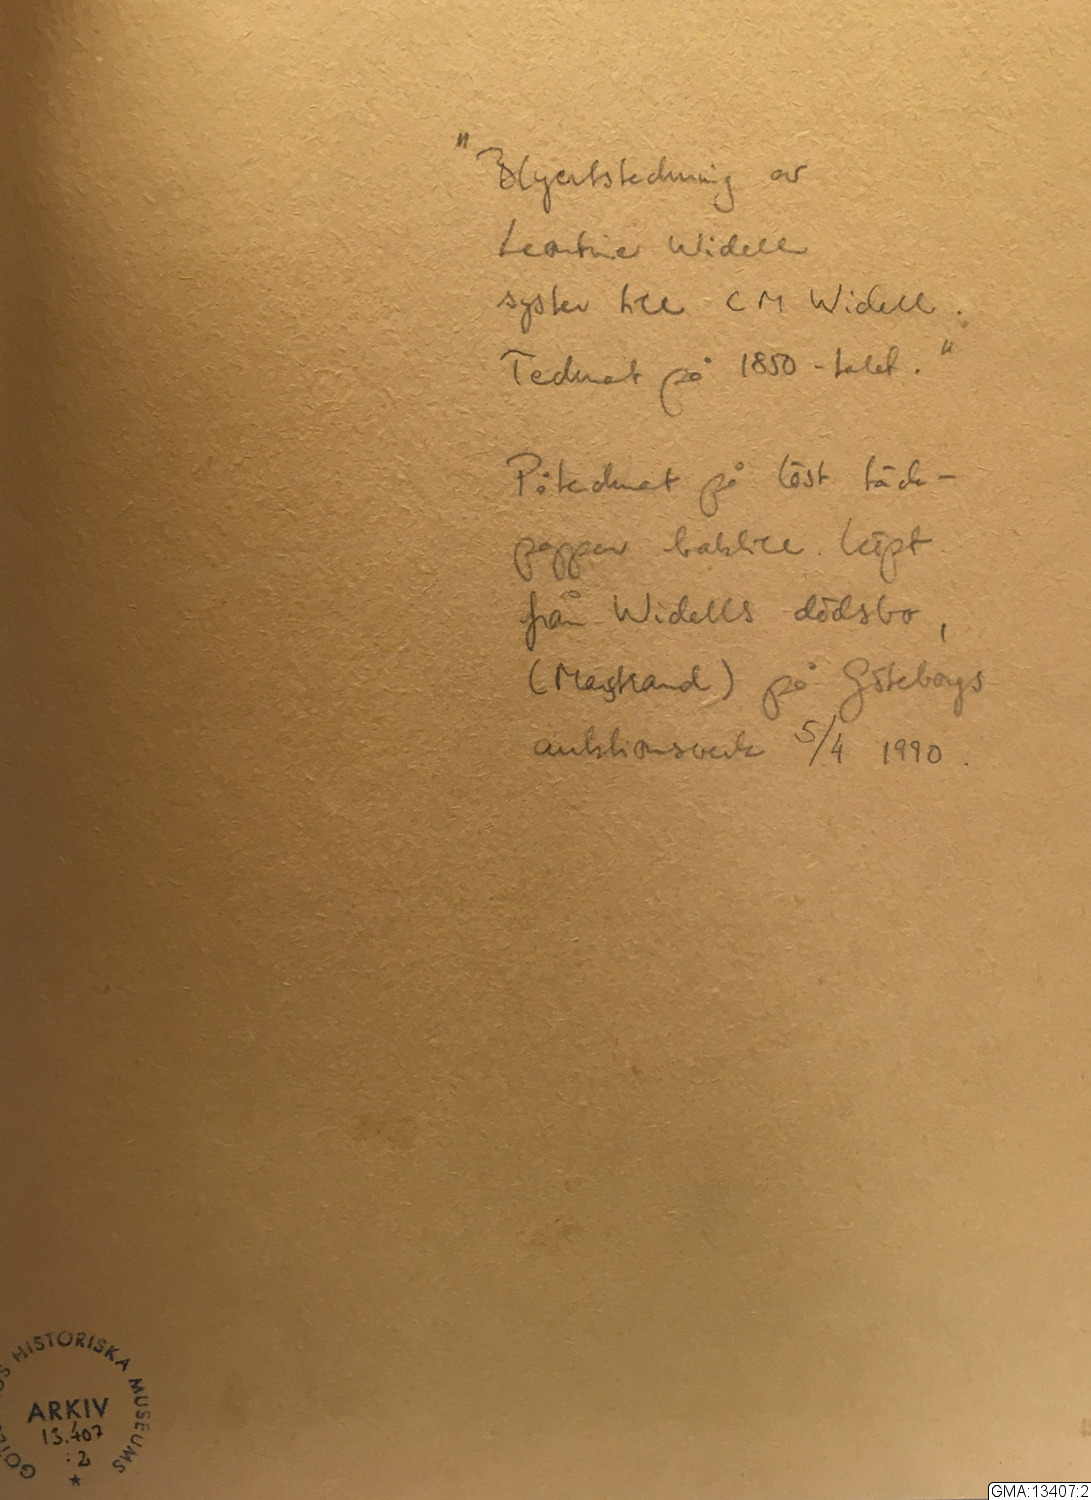 "Blyertsteckning av
Leontine Widell
syster till CM Widell.
Tecknat på 1850-talet."
Påtecknat på löst täck-
papper baktill. Köpt
från Widells dödsbo,
(Marstrand) på Göteborgs
auktionsverk 5/4 1990.
GÖTEBORGS HISTORISKA MUSEUMS
ARKIV
13.407
:2
GMA:13407:2